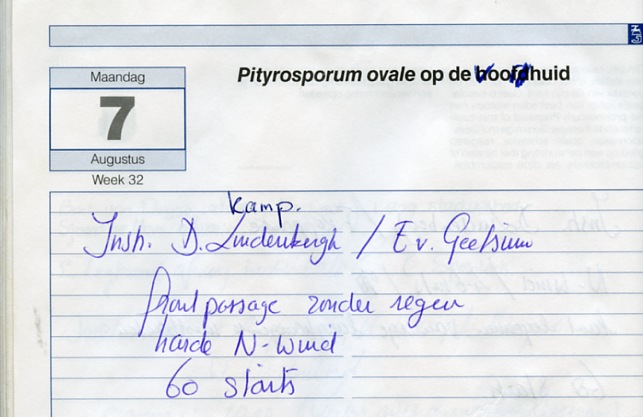 Maandag
7
Augustus
Week 32
Pityrosporum ovale op de hoofdhuid
kamp.
Insh. D. Lindenbergh / E v. Geelsum
frontpassage zonder regen
harde N-wind
60 starts